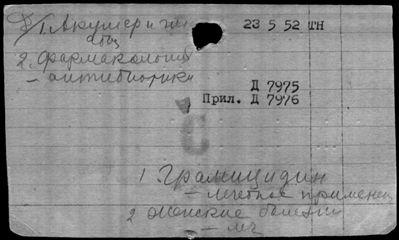 1. Акушер и гин
23 5 52 ТН
2. Фармакология
– антибиотики
Д 7975
Прил. Д 7976
1. Грамицидин
– лечебное применен
2 Женские болезни
– леч